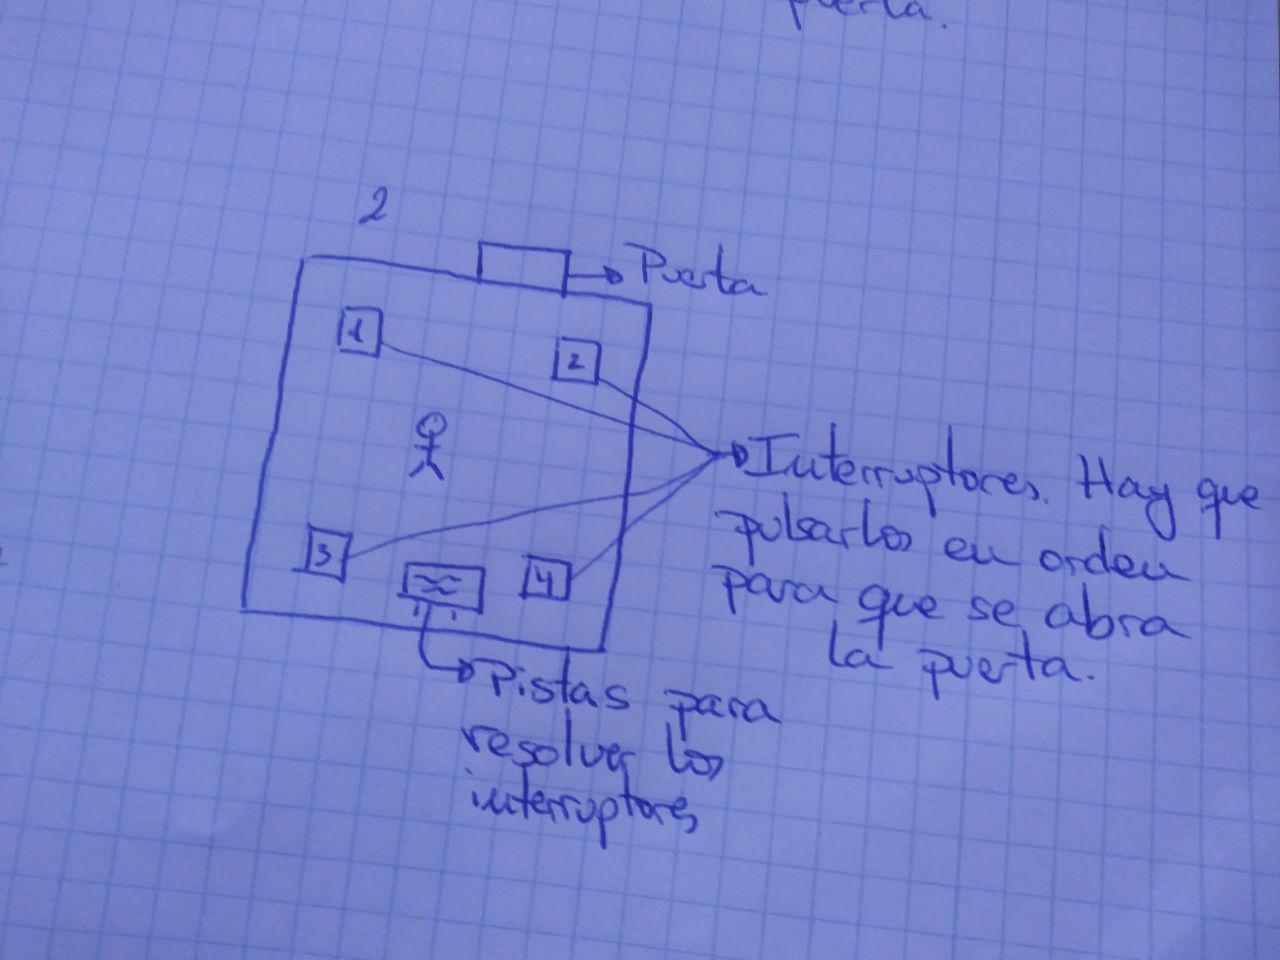 puerta.
2
Puerta
1
2
Interruptores. Hay que
pulsarlos en orden
para que se abra
la puerta.
3
4
Pistas para
resolver los
interruptores